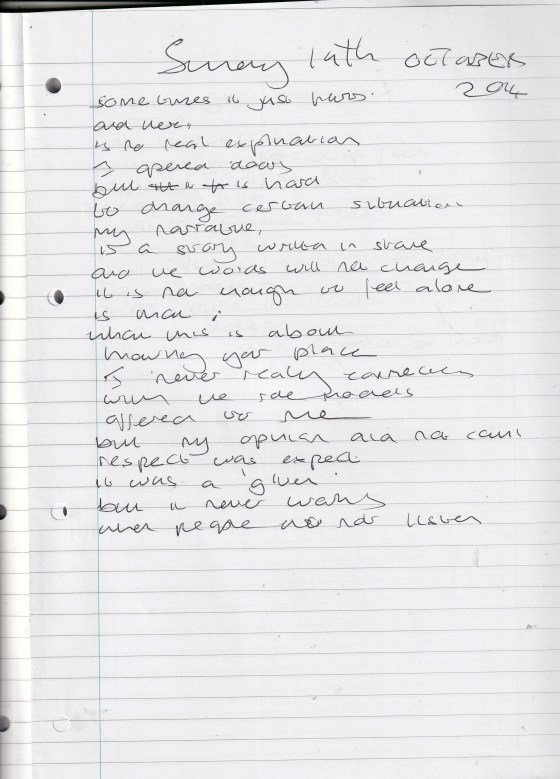 Sunday 14th OCTOBER
2014
sometimes it just hurts.
and there,
is no real explination
I opened doors
but is hard
to change certain situation
my narrative,
is a story written in stone
and the words will not change
it is not enough to feel alone
is that
what this is about
knowing your place
I never really connected
with the role models
offered to me
but my opinion did not count
respect was expect
it was a 'given'
but it never works
when people do not listen